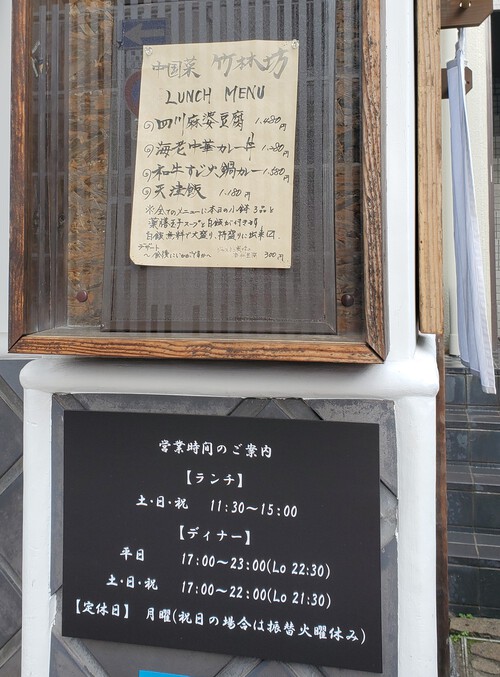 中国菜 竹林坊
LUNCH MENU
四川麻婆豆腐 1.480円
海老中華カレー丼 1.280円
和牛すじ火鍋カレー 1.580円
天津飯 1.180円
※全てのメニューに本日の小鉢3品と
薬膳玉子スープと白飯が付きます
白飯無料で大盛り、特盛りに出来ます
デザート
〜食後にいかがですか〜 300円
営業時間のご案内
【ランチ】
土・日・祝 11:30〜15:00
【ディナー】
平日 17:00〜23:00(Lo 22:30)
土・日・祝 17:00〜22:00(Lo 21:30)
【定休日】 月曜(祝日の場合は振替火曜休み)